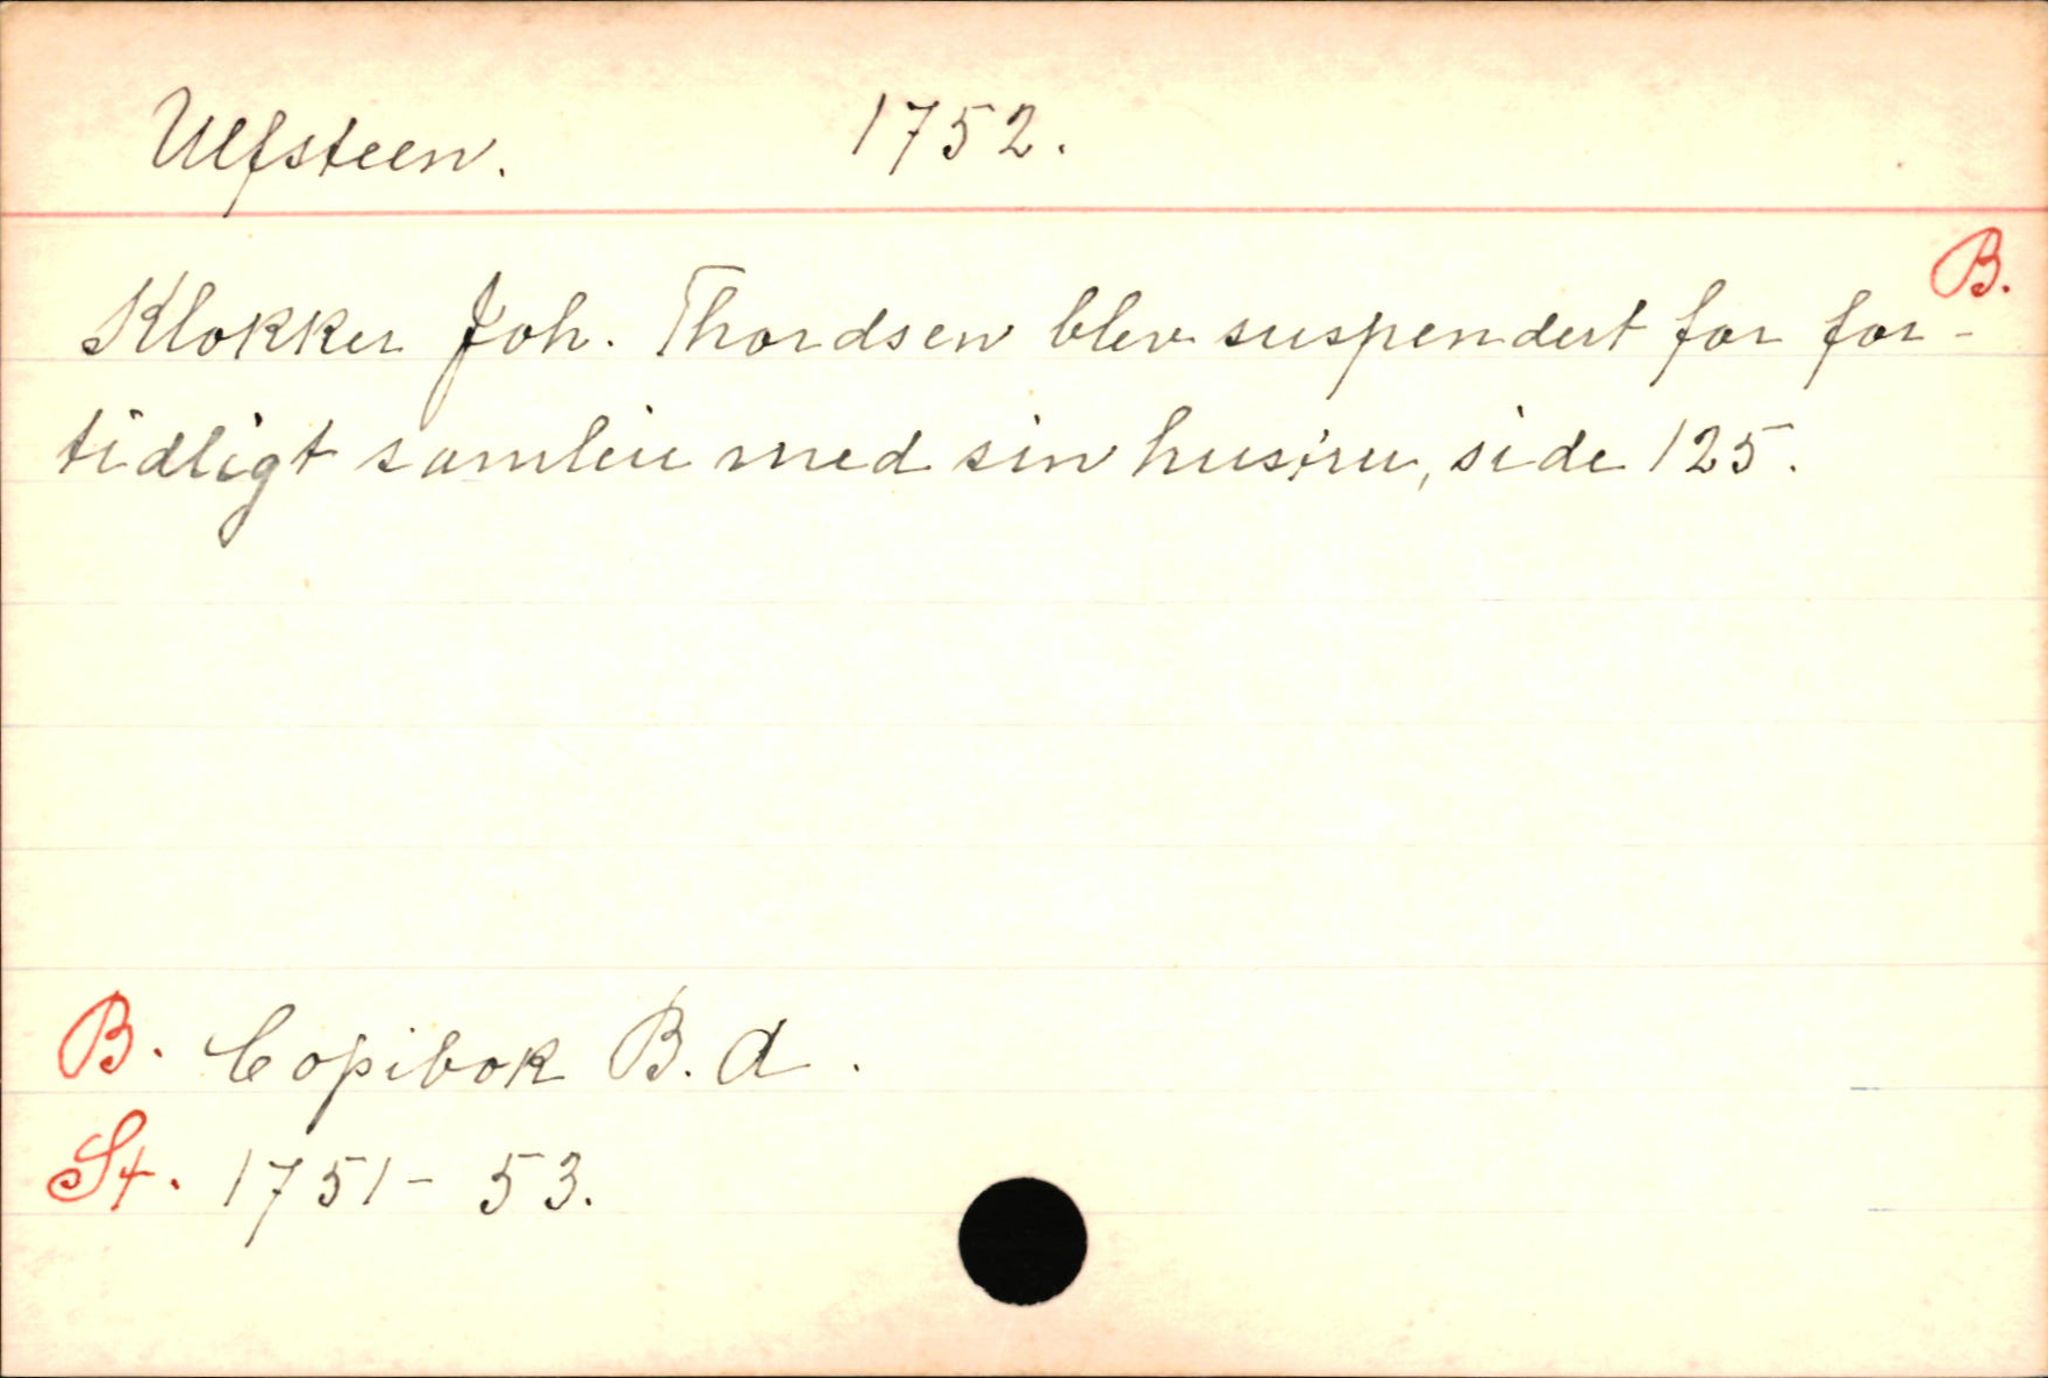 Ulfsteen. 1752.
B.
Klokker Joh. Thordsen blev suspendert for for-
tidligt samleie med sin husfru, side 125.
B. Copibok B. A.
St. 1751-53.